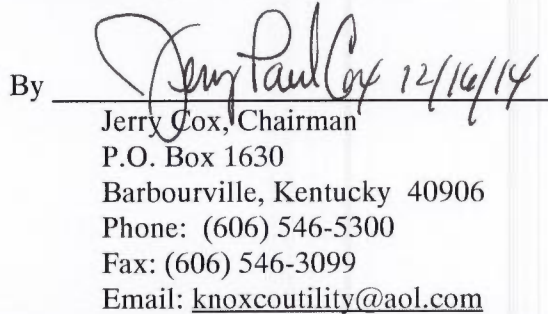 By Jerry Paul Cox 12/16/14
Jerry Cox, Chairman
P.O. Box 1630
Barbourville, Kentucky 40906
Phone: (606) 546-5300
Fax: (606) 546-3099
Email: knoxcoutility@aol.com